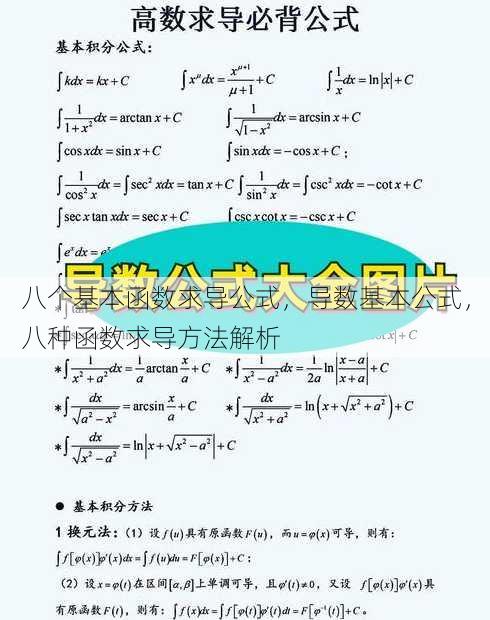 高数求导必背公式
基本积分公式：
∫kdx = kx + C ∫x^μ dx = x^(μ+1)/(μ+1) + C ∫1/x dx = ln|x| + C
∫1/(1+x²) dx = arctan x + C ∫1/√(1-x²) dx = arcsin x + C
∫cos xdx = sin x + C ∫sin xdx = -cos x + C；
∫1/cos² x dx = ∫sec² xdx = tan x + C ∫1/sin² x dx = ∫csc² xdx = -cot x + C
∫sec x tan xdx = sec x + C ∫csc x cot x = -csc x + C
∫e^x dx =
导数公式大全图片
八个基本函数求导公式，导数基本公式，
八种函数求导方法解析
*∫dx/(x²+a²) dx = 1/a arctan x/a + C *∫dx/(x²-a²) dx = 1/2a ln|(x-a)/(x+a)| + C
*∫dx/√(a²-x²) = arcsin x/a + C *∫dx/√(x²+a²) = ln(x+√(x²+a²)) + C
*∫dx/√(x²-a²) = ln|x+√(x²-a²)| + C
● 基本积分方法
1 换元法：（1）设f(u)具有原函数F(u)，而u=φ(x)可导，则有：
∫f[φ(x)]φ'(x)dx = ∫f(u)du = F[φ(x)] + C；
（2）设x=φ(t)在区间[α,β]上单调可导，且φ'(t)≠0，又设 f[φ(x)]φ'(x)具
有原函数F(t)，则有：∫f(x)dx = ∫f[φ(t)]φ'(t)dt = F[φ⁻¹(t)] + C。